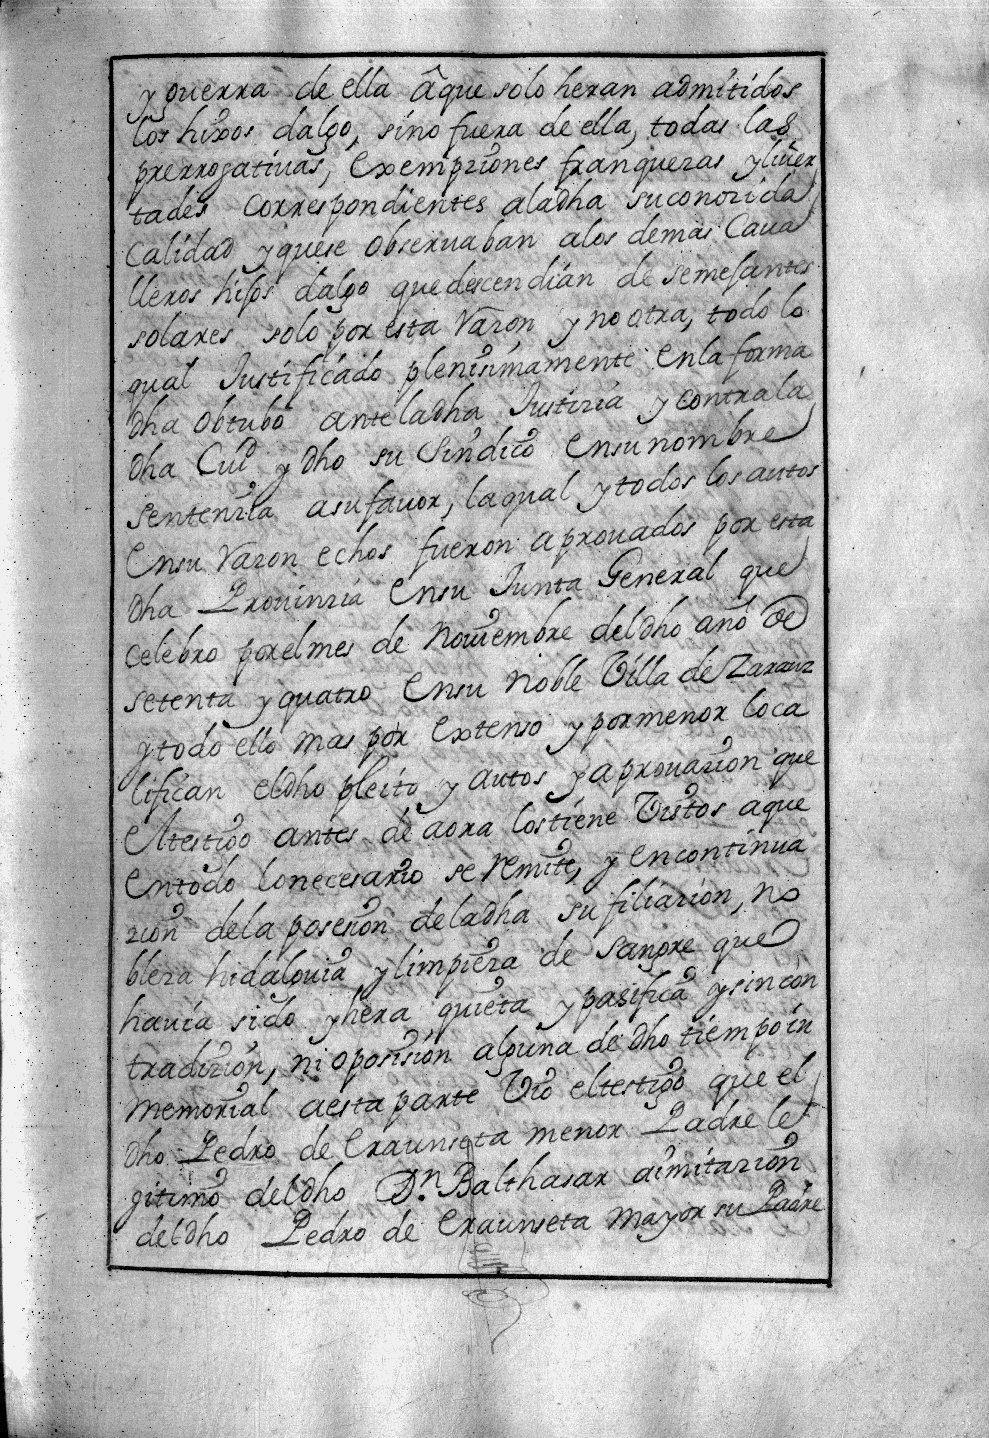 y guerra de ella âque solo heran admitidos
los hixos dalgo, sino fuera de ella, todas las
prerrogatiuas, exempziones franquezas yliuer
tades correspondientes aladha suconozida
Calidad yquese obseruaban alos demas Caua
lleros hijos dalgo quedescendian de semejantes
solares solo por esta razon y no otra, todo lo
qual Justificado plenisimamente enla forma
dha obtubo anteladha Justizia y contrala
dha Ciud y dho su Sindico ensunombre
sentenzia asufauor, laqual y todos los autos
ensu razon echos fueron aprouados por esta
dha Prouinzia ensu Junta General que
celebro porelmes de Nouiembre deldho año de
setenta y quatro ensu Noble Villa de Zarauz
ytodo ello mas por extenso y pormenor loca
lifican eldho pleito y autos yaprouazion que
eltestigo antes de aora lostiene Vistos aque
entodo lonecesario se remite, y encontinua
zion dela posesion deladha su filiazion, no
bleza hidalguia ylimpieza de sangre que
hauia sido yhera quieta y pasifica ysincon
tradizion, ni oposision alguna de dho tiempo in
memorial aesta parte Vio eltestigo que el
dho Pedro de Eraunseta menor Padre le
gitimo deldho Dn. Balthasar aimitazion
deldho Pedro de Eraunseta mayor su Padre